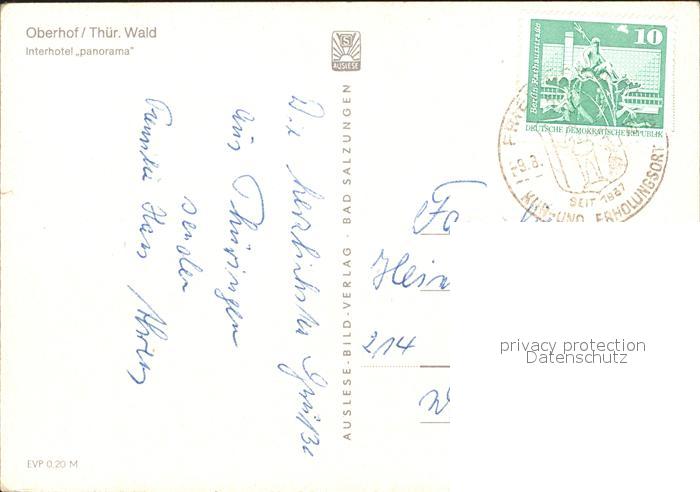 Oberhof / Thür. Wald
Interhotel „panorama"
AUSLESE
AUSLESE-BILD-VERLAG · BAD SALZUNGEN
Die herzlichsten Grüße
aus Thüringen
senden
Familie
EVP 0,20 M
10
Berlin, Rathausstraße
DEUTSCHE DEMOKRATISCHE REPUBLIK
FRIE
9.8.
SEIT 1837
KUR-UND ERHOLUNGSORT
Fa
Hein
214
W
privacy protection
Datenschutz